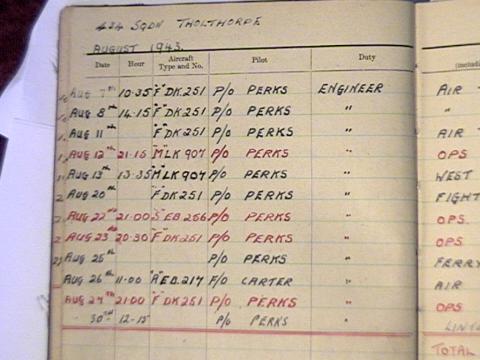 424 SQDN THOLTHORPE
AUGUST 1943
Date Hour Aircraft Type and No. Pilot Duty
AUG 7th 10·35 "F" DK.251 P/O PERKS ENGINEER AIR
AUG 8th 14·15 "F" DK.251 P/O PERKS "
AUG 11th "F" DK.251 P/O PERKS " AIR
AUG 12th 21·15 "M" LK 907 P/O PERKS " OPS
AUG 13th 13·35 "M" LK 907 P/O PERKS " WEST
AUG 20th "F" DK 251 P/O PERKS " FIGHT
AUG 22nd 21·00 "S" EB 256 P/O PERKS " OPS.
AUG 23rd 20·30 "F" DK251 P/O PERKS " OPS
AUG 25th P/O PERKS " FERRY
AUG 26th 11·00 "A" EB.217 F/O CARTER " AIR
AUG 27th 21·00 "F" DK251 P/O PERKS " OPS
30th 12-15 P/O PERKS
TOTAL